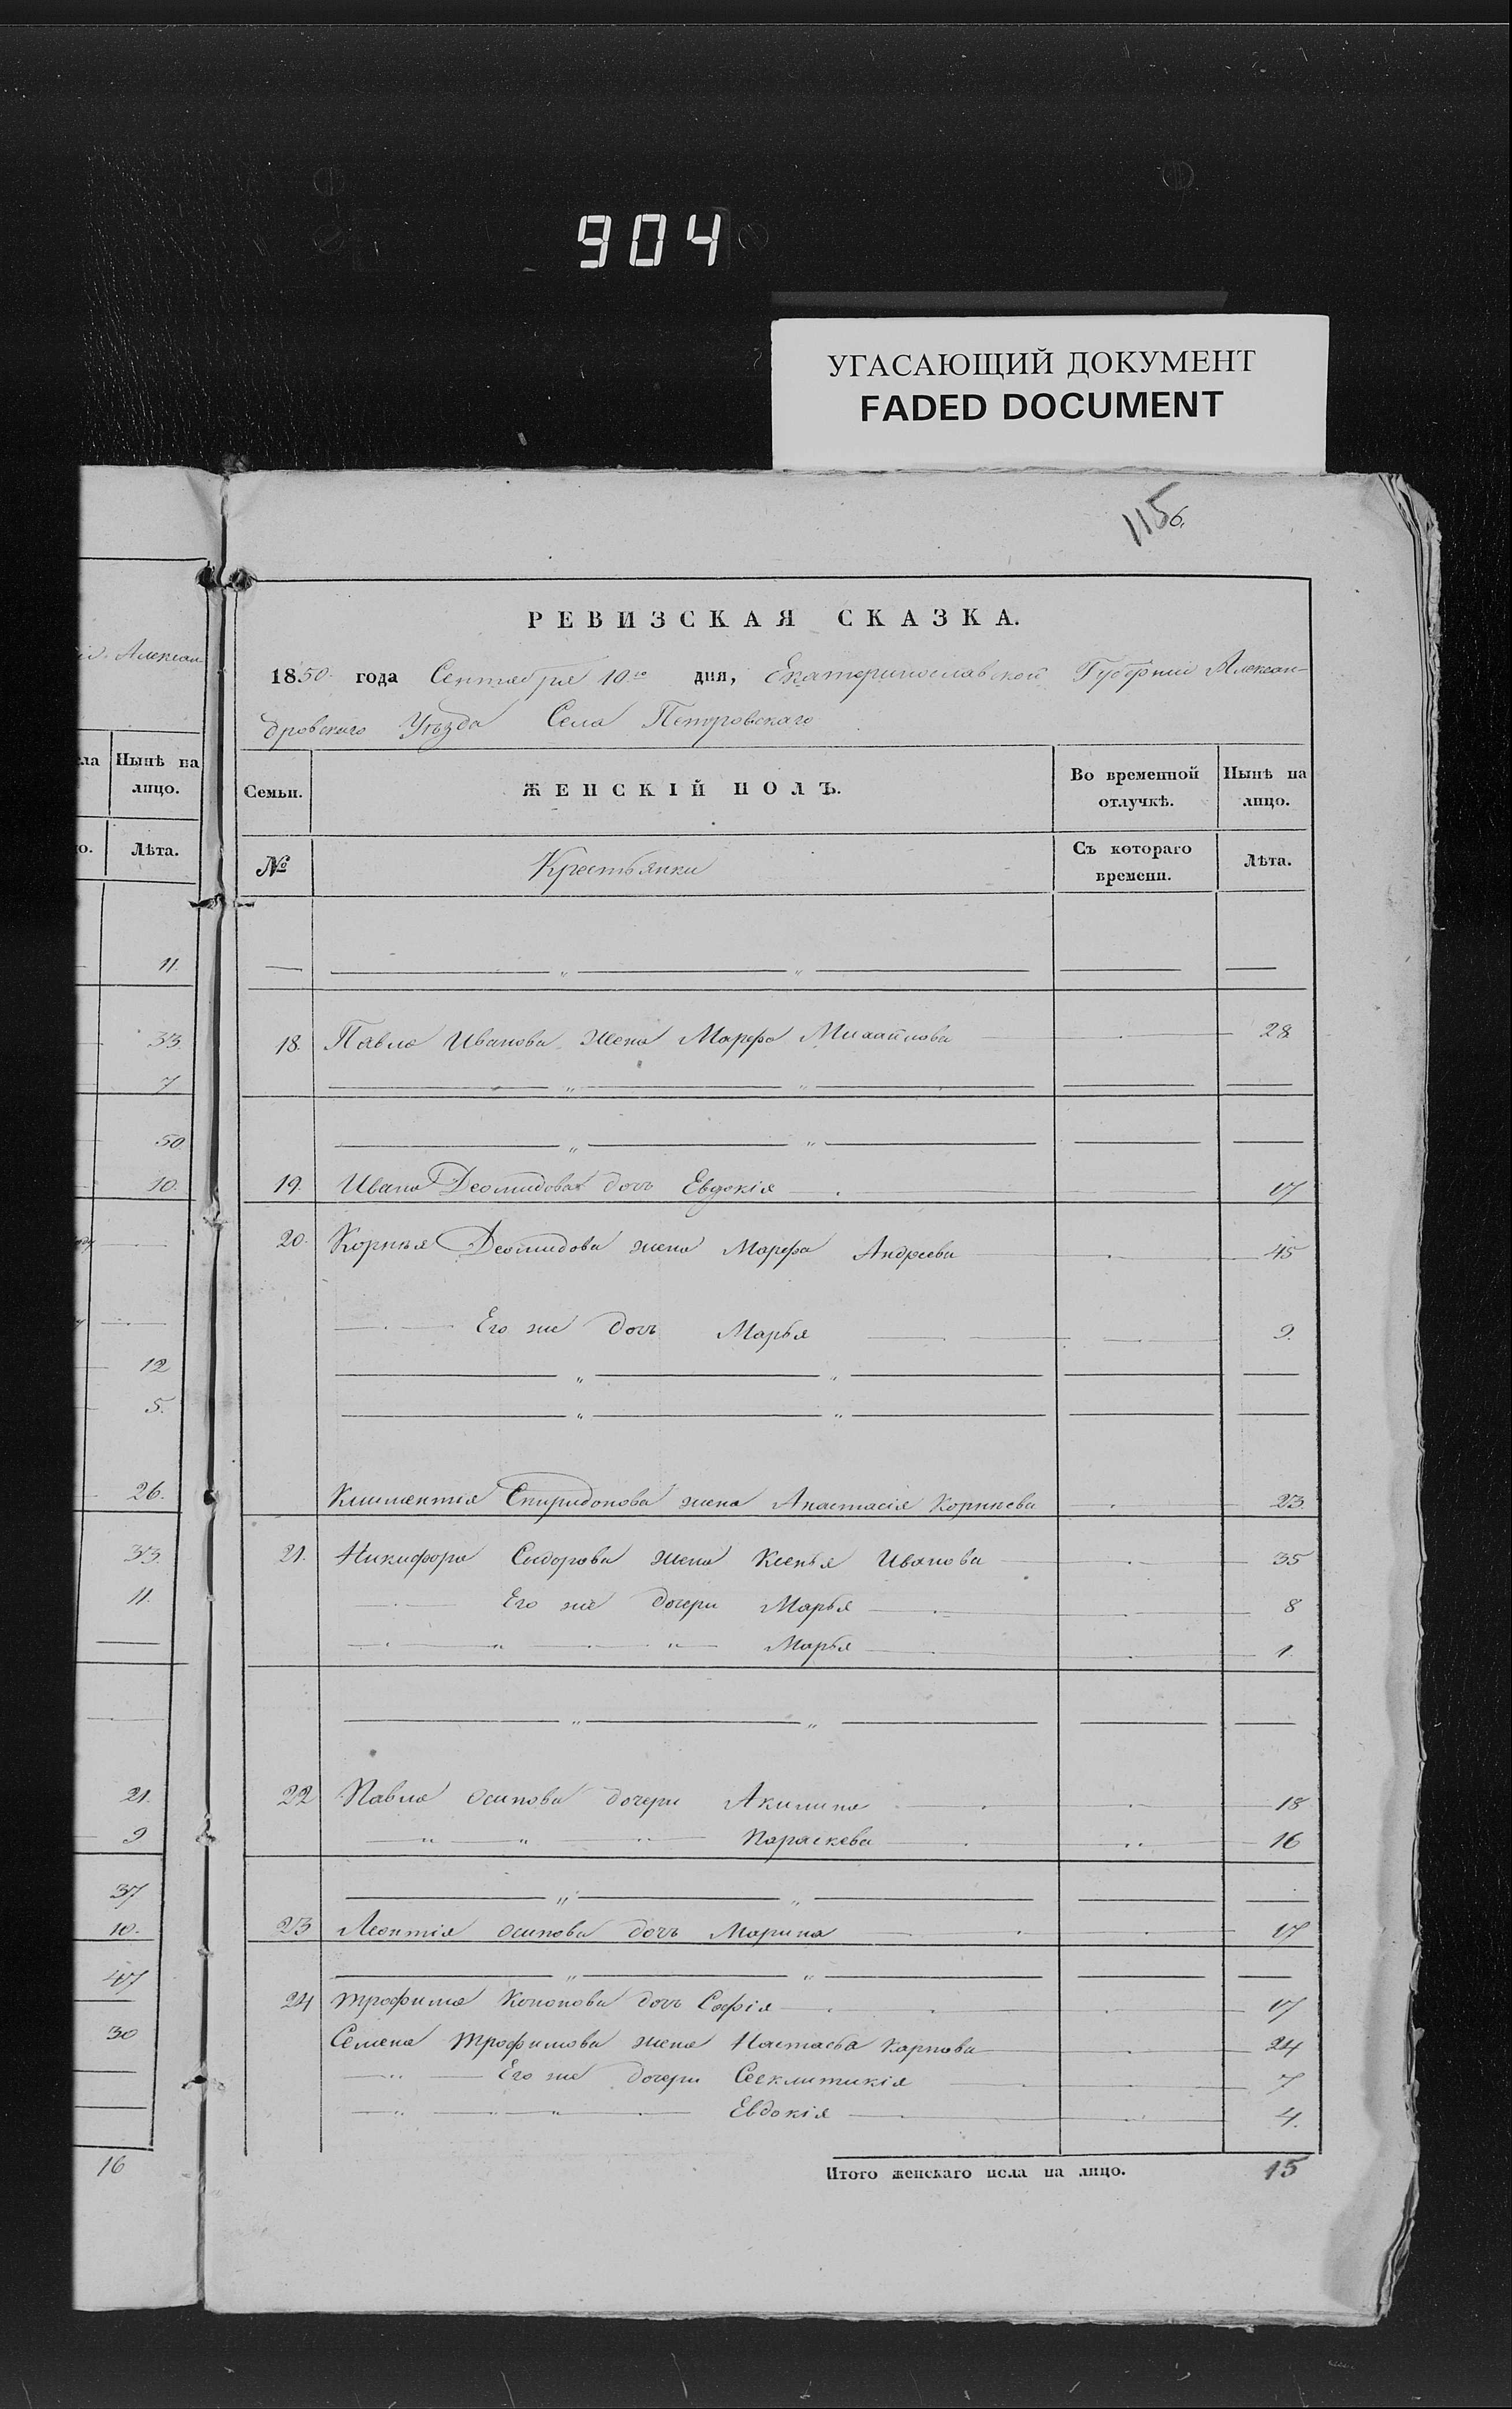 904
УГАСАЮЩИЙ ДОКУМЕНТ
FADED DOCUMENT
115
6.
Алексан-
ла Нынѣ на
лицо.
о. Лѣта.
11.
33.
7
50
10.
12
5.
26.
33.
11.
21.
9
37
10.
47
30
16
РЕВИЗСКАЯ СКАЗКА.
1850 года Сентября 10го дня, Екатеринославской Губерніи Алексан-
дровскаго Уѣзда Села Петровскаго
Семьи. ЖЕНСКІЙ ПОЛЪ. Во временной отлучкѣ. Нынѣ на лицо.
№ Крестьянки Съ котораго времени. Лѣта.
18. Павла Иванова жена Марфа Михайлова 28
19. Ивана Деомидова дочь Евдокія 17
20. Корнѣя Деомидова жена Марфа Андреева 45
Его же дочь Марья 9.
Климентія Спиридонова жена Анастасія Корнѣева 23.
21. Никифора Сидорова жена Ксенья Иванова 35
Его же дочери Марья 8
" " Марья 1
22 Павла Осипова дочери Акилина 18
" " " Параскева 16
23 Леонтія Осипова дочь Марина 17
24 Трофима Кононова дочь Софія 17
Семена Трофимова жена Настасья Карпова 24
" Его же дочери Секлитикія 7
" " " Евдокія 4.
Итого женскаго пола на лицо. 15